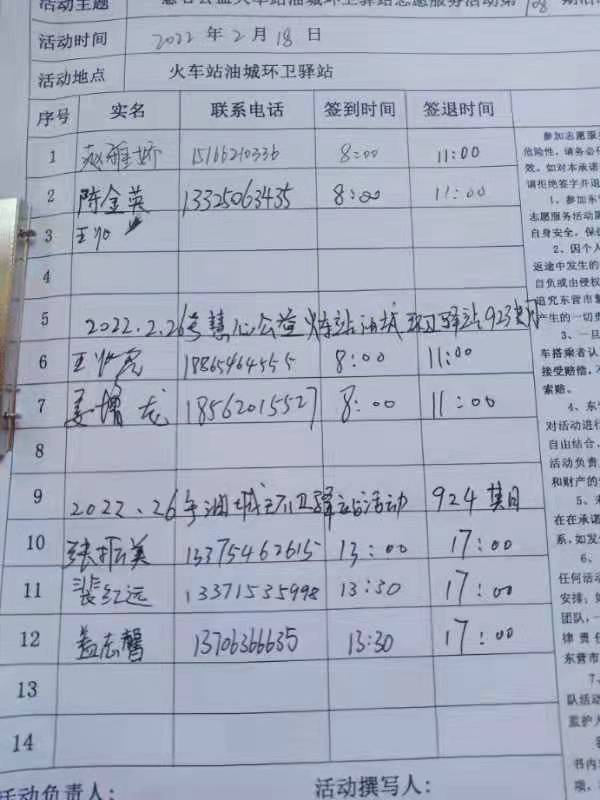 活动主题 慧心公益火车站油城环卫驿站志愿服务活动第 08 期活
活动时间 2022年2月18日
活动地点 火车站油城环卫驿站
序号 实名 联系电话 签到时间 签退时间
1 赵雅娇 15166210336 8:00 11:00
2 陈金英 13325063435 8:00 11:00
3 王
4
5 2022.2.26号慧心公益火车站油城环卫驿站923期
6 王 18865464555 8:00 11:00
7 姜增龙 18562015527 8:00 11:00
8
9 2022、26号油城环卫驿站活动 924期
10 张振美 13375462615 13:00 17:00
11 裴红远 13371535998 13:30 17:00
12 盖志馨 13706366635 13:30 17:00
13
14
活动负责人： 活动撰写人：
参加志愿服
危险性，请务必
效。如对本承诺
请拒绝签字并退
1、参加东
志愿服务活动
自身安全，保
2、因个人
返途中发生的
自负或由侵权
追究东营市
产生的一切
3、一旦
车搭乘者认
接受赔偿，
索赔。
4、东
对活动进行
自由结合，
活动负责
和财产的
5、未
在在承诺
系，如发
6、
任何活动
安排；如
团队，一
律责任
东营市
7、
队活动
监护人
书内
项，